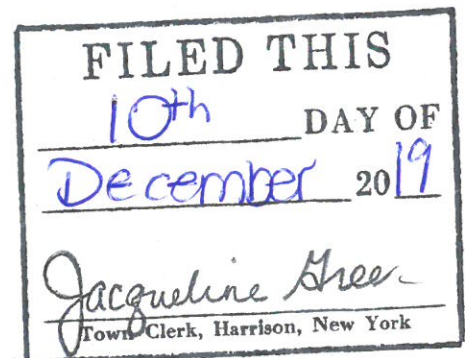 FILED THIS
10th DAY OF
December 2019
Jacqueline Greer
Town Clerk, Harrison, New York